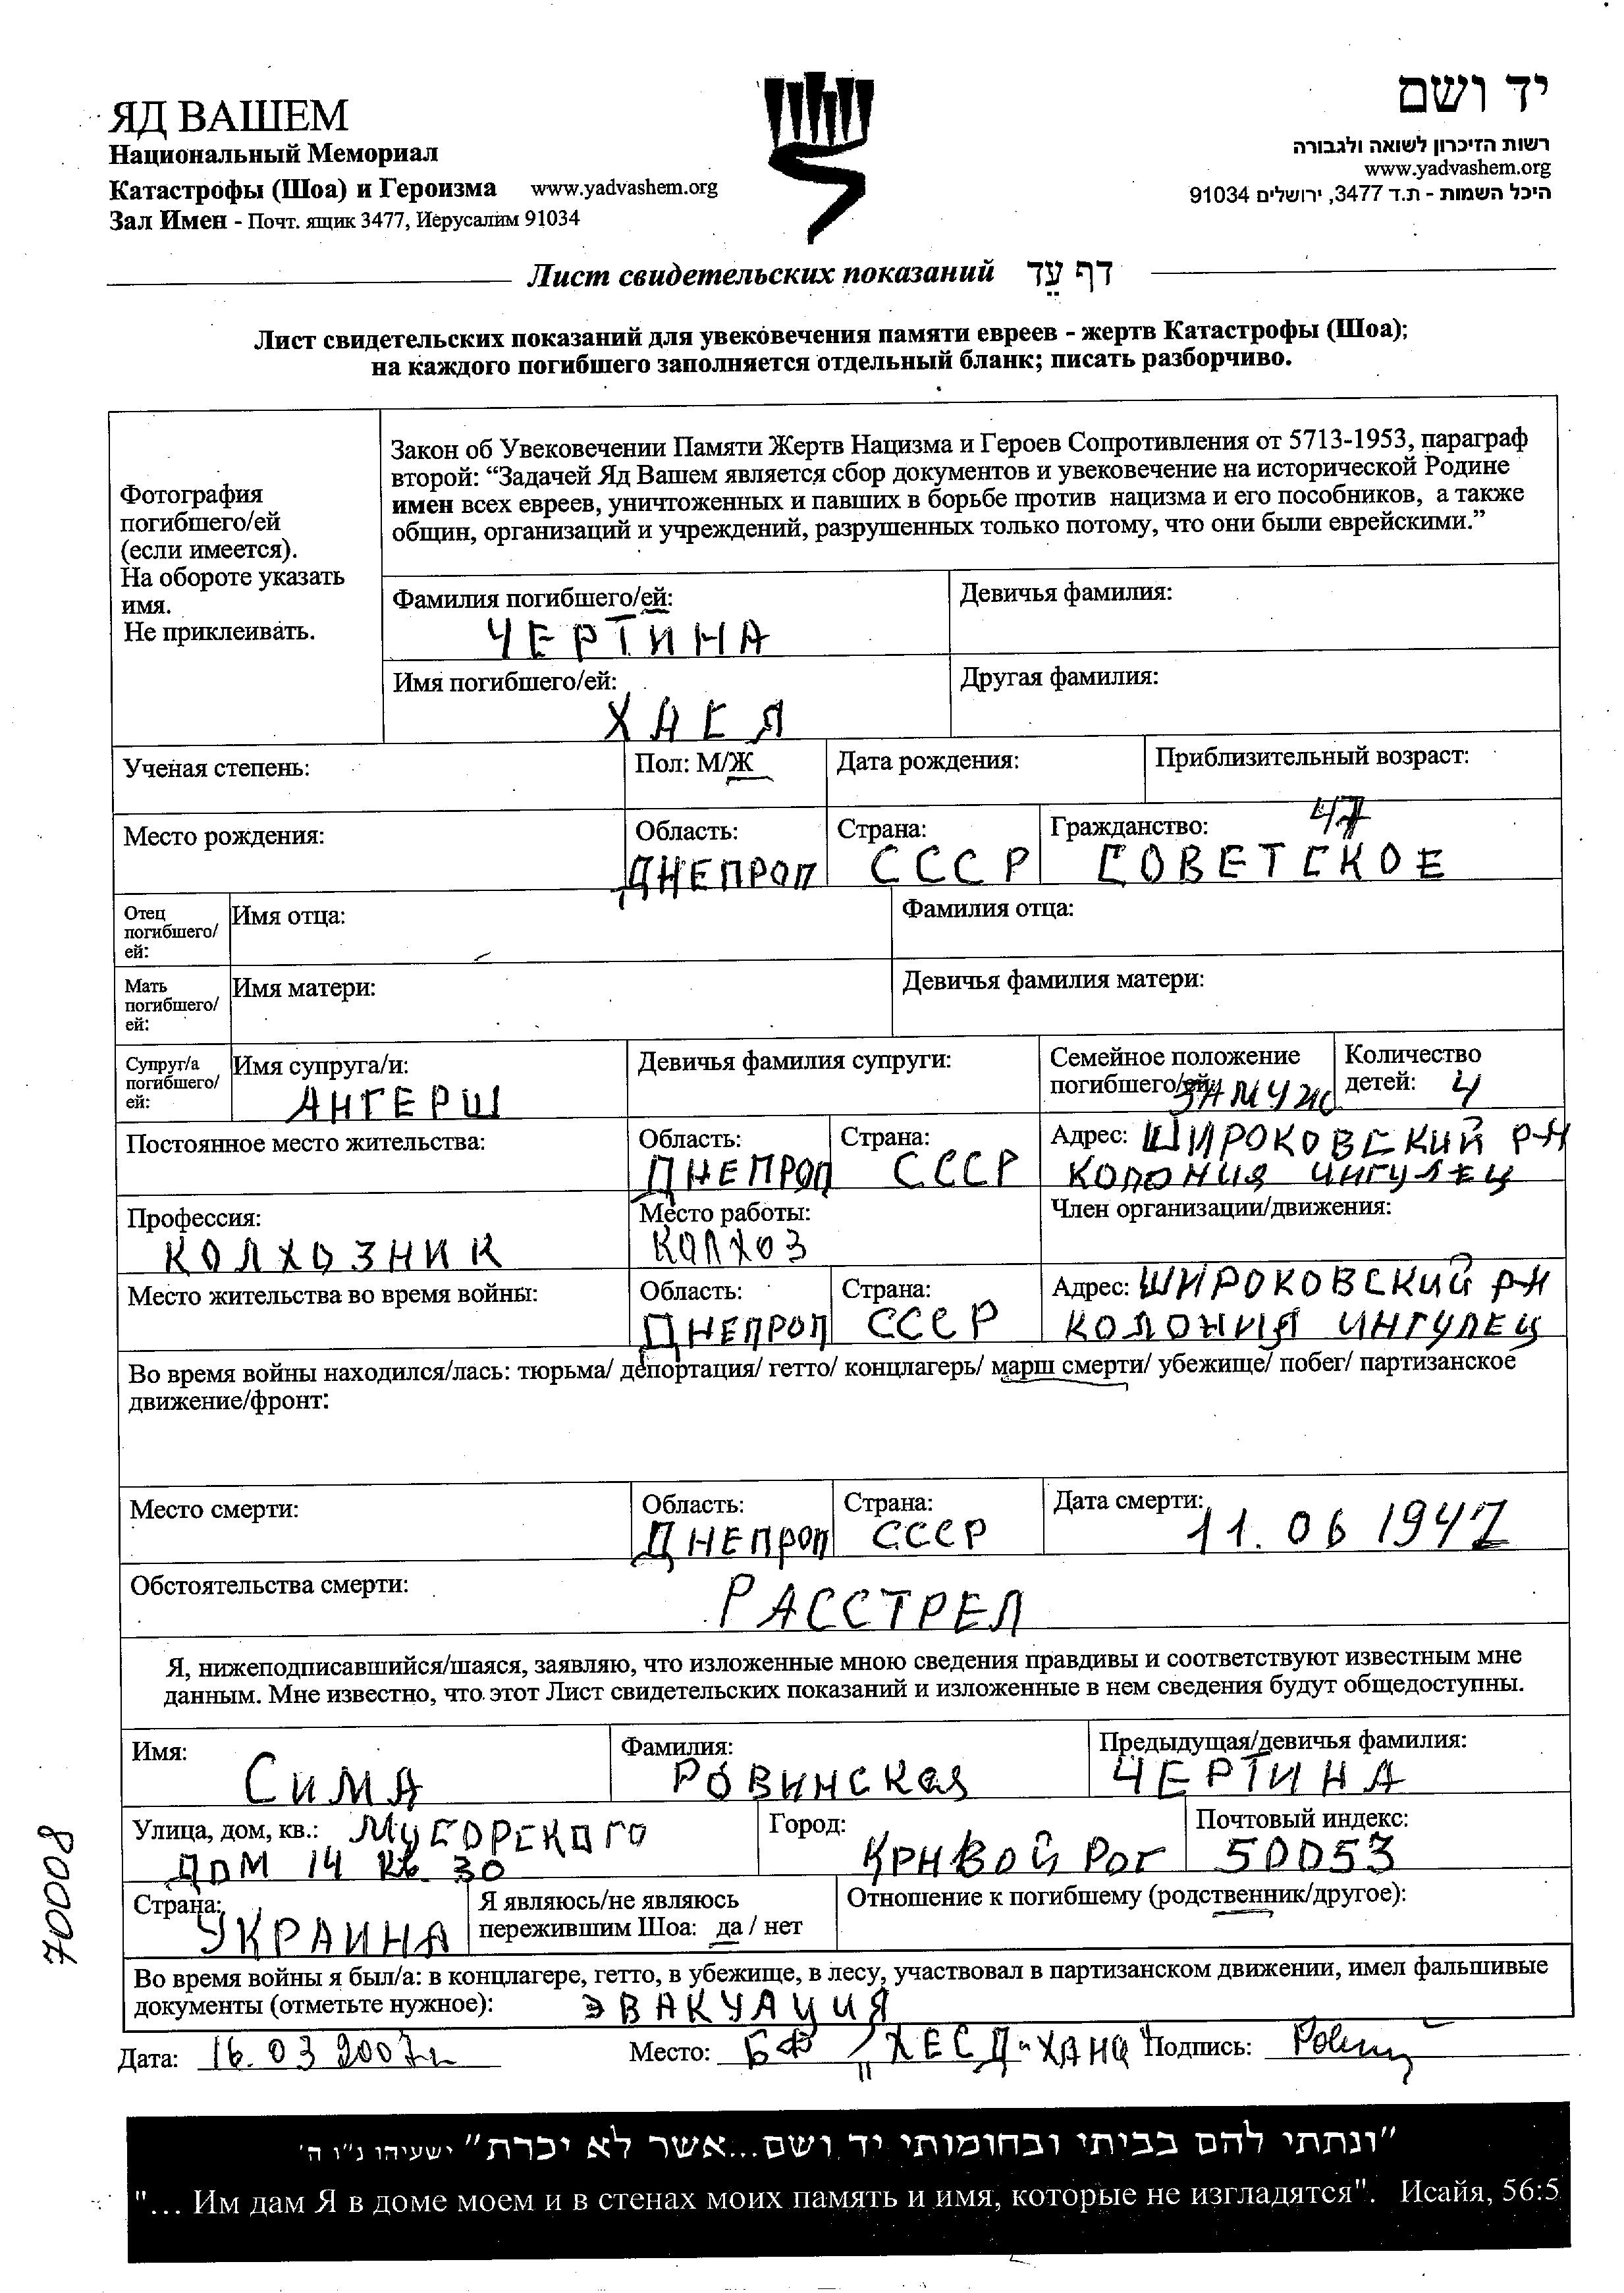 ЯД ВАШЕМ
Национальный Мемориал
Катастрофы (Шоа) и Героизма www.yadvashem.org
Зал Имен - Почт. ящик 3477, Иерусалим 91034
יד ושם
רשות הזיכרון לשואה ולגבורה
www.yadvashem.org
היכל השמות - ת.ד 3477, ירושלים 91034
Лист свидетельских показаний דף עֵד
Лист свидетельских показаний для увековечения памяти евреев - жертв Катастрофы (Шоа);
на каждого погибшего заполняется отдельный бланк; писать разборчиво.
Фотография
погибшего/ей
(если имеется).
На обороте указать
имя.
Не приклеивать.
Закон об Увековечении Памяти Жертв Нацизма и Героев Сопротивления от 5713-1953, параграф
второй: “Задачей Яд Вашем является сбор документов и увековечение на исторической Родине
имен всех евреев, уничтоженных и павших в борьбе против нацизма и его пособников, а также
общин, организаций и учреждений, разрушенных только потому, что они были еврейскими.”
Фамилия погибшего/ей: Девичья фамилия:
ЧЕРТИНА
Имя погибшего/ей: Другая фамилия:
ХАСЯ
Ученая степень: Пол: М/Ж Дата рождения: Приблизительный возраст:
47
Место рождения: Область: Страна: Гражданство:
ДНЕПРОП СССР СОВЕТСКОЕ
Отец
погибшего/
ей:
Имя отца: Фамилия отца:
Мать
погибшего/
ей:
Имя матери: Девичья фамилия матери:
Супруг/а
погибшего/
ей:
Имя супруга/и: Девичья фамилия супруги: Семейное положение
погибшего/ей: Количество
детей: 4
АНГЕРШ ЗАМУЖ
Постоянное место жительства: Область: Страна: Адрес: ШИРОКОВСКИЙ Р-Н
ДНЕПРОП СССР КОЛОНИЯ ИНГУЛЕЦ
Профессия: Место работы: Член организации/движения:
КОЛХОЗНИК КОЛХОЗ
Место жительства во время войны: Область: Страна: Адрес: ШИРОКОВСКИЙ Р-Н
ДНЕПРОП СССР КОЛОНИЯ ИНГУЛЕЦ
Во время войны находился/лась: тюрьма/ депортация/ гетто/ концлагерь/ марш смерти/ убежище/ побег/ партизанское
движение/фронт:
Место смерти: Область: Страна: Дата смерти:
ДНЕПРОП СССР 11.06 1942
Обстоятельства смерти:
РАССТРЕЛ
Я, нижеподписавшийся/шаяся, заявляю, что изложенные мною сведения правдивы и соответствуют известным мне
данным. Мне известно, что этот Лист свидетельских показаний и изложенные в нем сведения будут общедоступны.
Имя: Фамилия: Предыдущая/девичья фамилия:
СИМА РОВИНСКАЯ ЧЕРТИНА
Улица, дом, кв.: МУСОРСКОГО Город: Почтовый индекс:
ДОМ 14 КВ. 30 КРИВОЙ РОГ 50053
Страна: Я являюсь/не являюсь
пережившим Шоа: да / нет Отношение к погибшему (родственник/другое):
УКРАИНА
Во время войны я был/а: в концлагере, гетто, в убежище, в лесу, участвовал в партизанском движении, имел фальшивые
документы (отметьте нужное): ЭВАКУАЦИЯ
Дата: 16.03 2007г Место: БФ „ХЕСЕД-ХАНА“ Подпись:
70008
"ונתתי להם בביתי ובחומותי יד ושם...אשר לא יכרת" ישעיהו נ"ו ה'
"... Им дам Я в доме моем и в стенах моих память и имя, которые не изгладятся". Исайя, 56:5